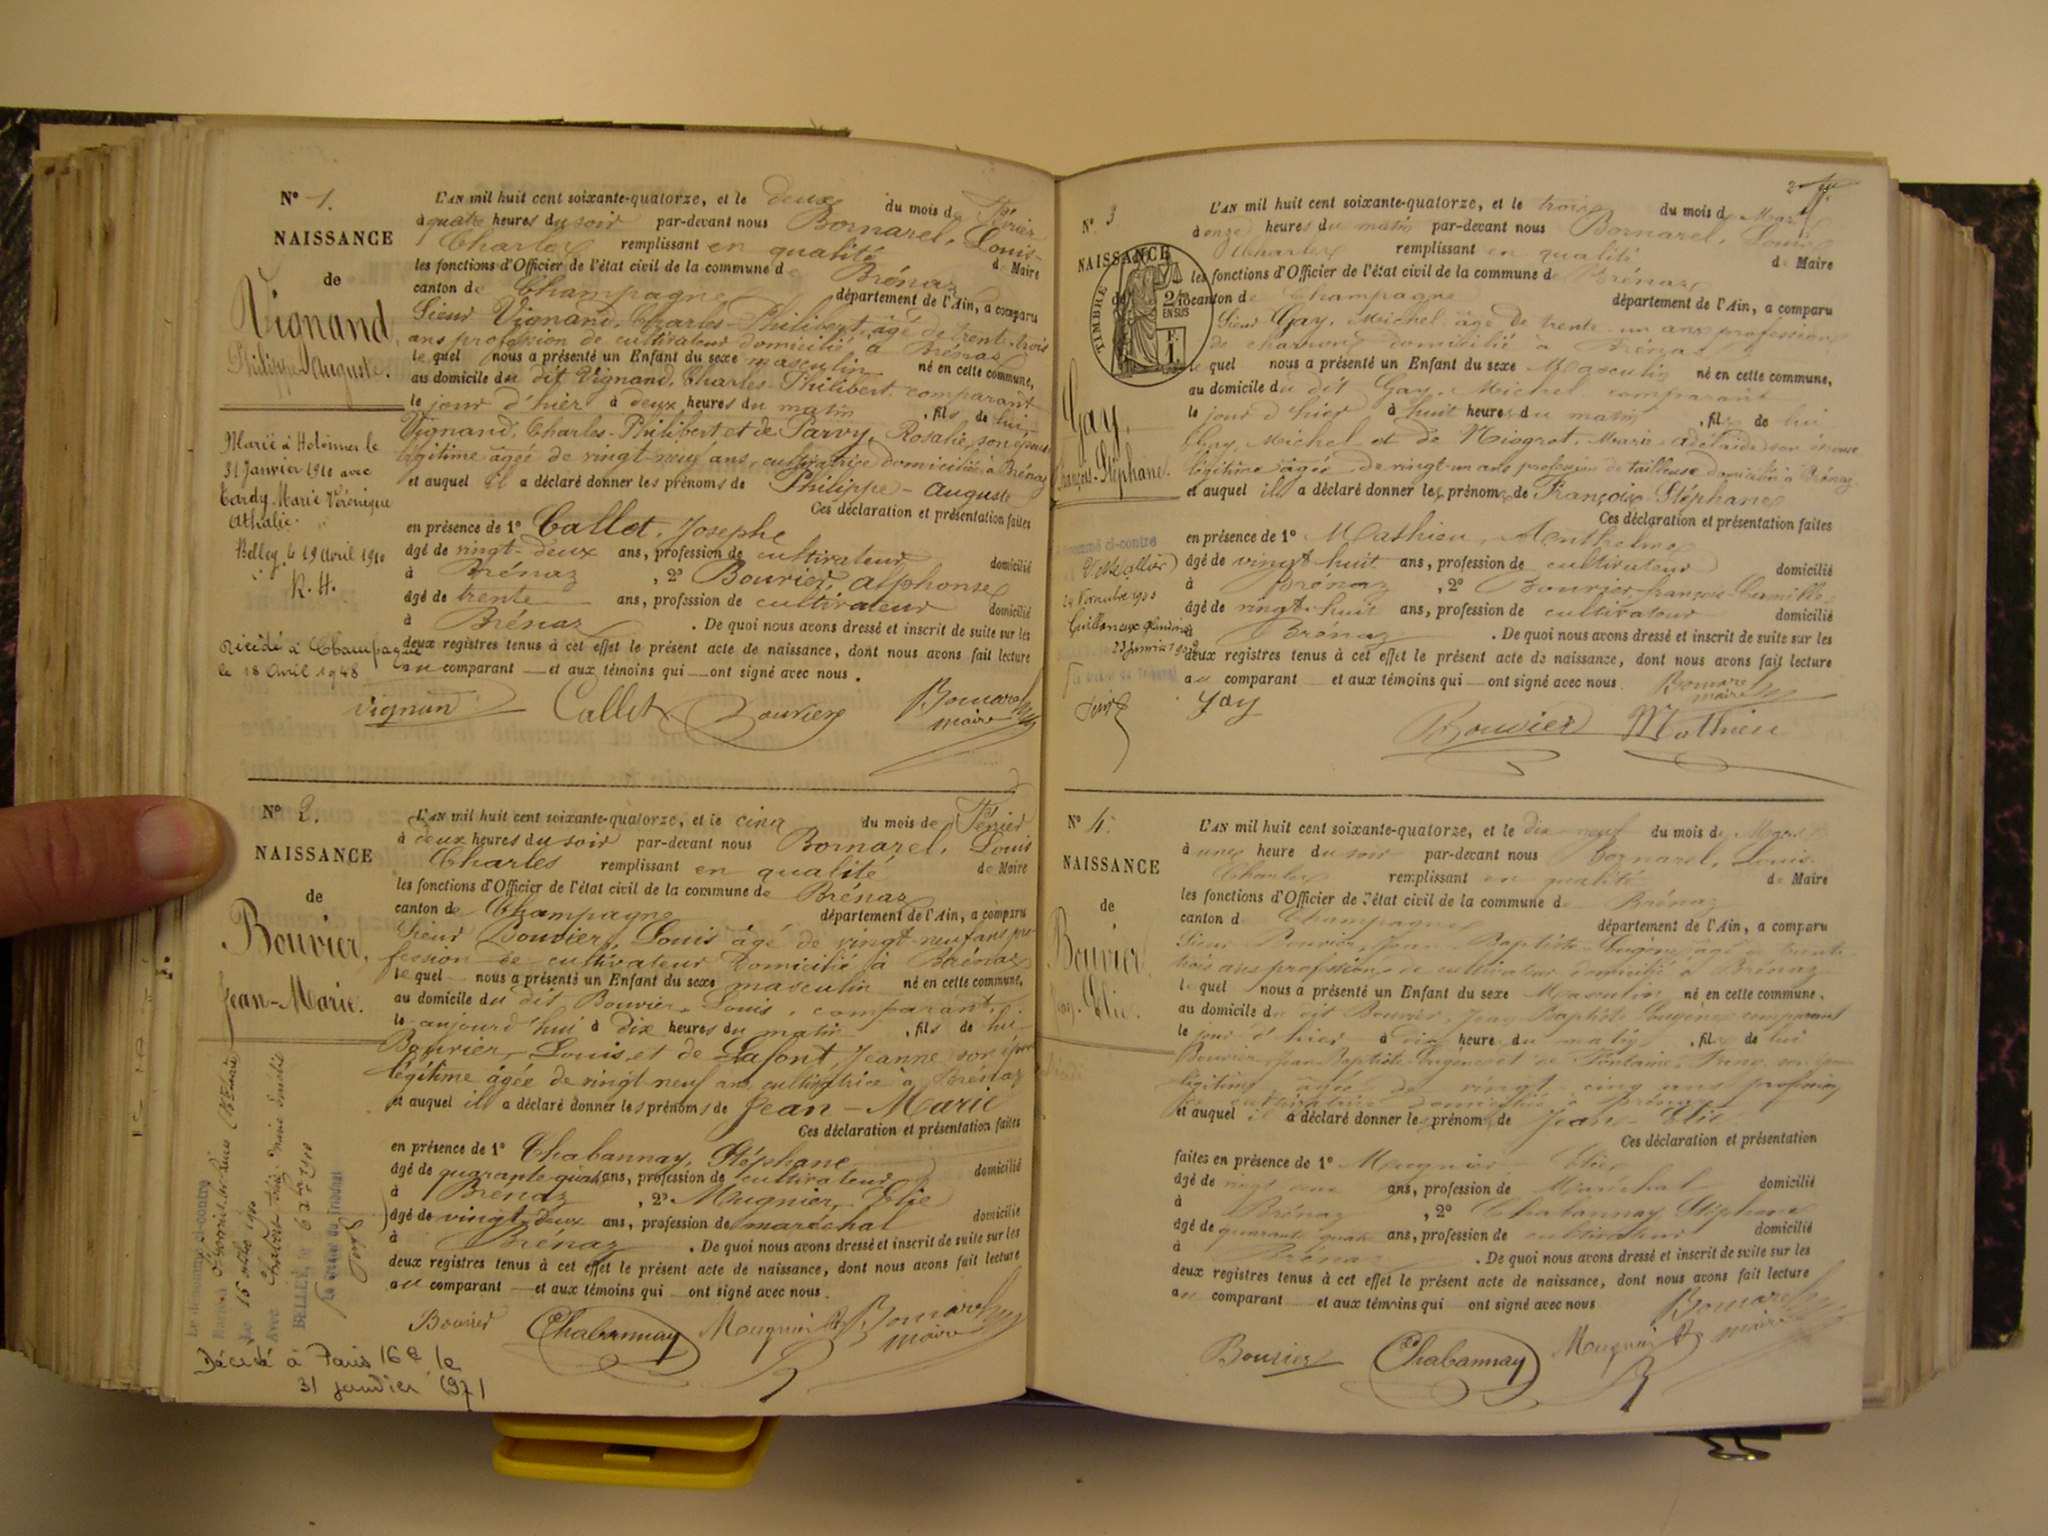 N° 1.
NAISSANCE
de
Vignand,
Philippe-Auguste.
Marié à Hotonnes le
31 Janvier 1910 avec
Tardy Marie Véronique
Athalie.
Belley, le 19 avril 1910
R. H.
Décédé à Champagne
le 18 Avril 1948
L'AN mil huit cent soixante-quatorze, et le deux du mois de Février
à quatre heures du soir par-devant nous Bornarel, Louis-
Charles remplissant en qualité de Maire
les fonctions d'Officier de l'état civil de la commune de Brénaz
canton de Champagne département de l'Ain, a comparu
Sieur Vignand, Charles-Philibert, âgé de trente-trois
ans profession de cultivateur domicilié à Brénaz
lequel nous a présenté un Enfant du sexe masculin né en cette commune,
au domicile du dit Vignand, Charles-Philibert, comparant
le jour d'hier à deux heures du matin, fils de lui
Vignand, Charles-Philibert et de Parvy, Rosalie, son épouse
légitime âgée de vingt-neuf ans, cultivatrice domiciliée à Brénaz
et auquel il a déclaré donner les prénoms de Philippe-Auguste
Ces déclaration et présentation faites
en présence de 1° Callet, Josephe
âgé de vingt-deux ans, profession de cultivateur domicilié
à Brénaz, 2° Bouvier, Alphonse
âgé de trente ans, profession de cultivateur domicilié
à Brénaz. De quoi nous avons dressé et inscrit de suite sur les
deux registres tenus à cet effet le présent acte de naissance, dont nous avons fait lecture
au comparant et aux témoins qui ont signé avec nous.
Vignand Callet Bouvier Bornarel
maire
N° 2.
NAISSANCE
de
Bouvier,
Jean-Marie.
Le dénommé ci-contre
Décédé à Paris 16e le
31 janvier 1971
L'AN mil huit cent soixante-quatorze, et le cinq du mois de Février
à deux heures du soir par-devant nous Bornarel, Louis
Charles remplissant en qualité de Maire
les fonctions d'Officier de l'état civil de la commune de Brénaz
canton de Champagne département de l'Ain, a comparu
Sieur Bouvier, Louis âgé de vingt-neuf ans pro-
fession de cultivateur domicilié à Brénaz
lequel nous a présenté un Enfant du sexe masculin né en cette commune,
au domicile du dit Bouvier, Louis, comparant,
le aujourd'hui à dix heures du matin, fils de lui
Bouvier, Louis, et de Lafont, Jeanne, son épouse
légitime âgée de vingt-neuf ans cultivatrice à Brénaz
et auquel il a déclaré donner les prénoms de Jean-Marie
Ces déclaration et présentation faites
en présence de 1° Chabannay, Stéphane
âgé de quarante-quatre ans, profession de cultivateur domicilié
à Brénaz, 2° Mugnier, Elie
âgé de vingt-deux ans, profession de maréchal domicilié
à Brénaz. De quoi nous avons dressé et inscrit de suite sur les
deux registres tenus à cet effet le présent acte de naissance, dont nous avons fait lecture
au comparant et aux témoins qui ont signé avec nous.
Bouvier Chabannay Mougnier Bornarel
maire
2
N° 3
NAISSANCE
de
TIMBRE
2/10
EN SUS
Gay,
François-Stéphane.
L'AN mil huit cent soixante-quatorze, et le trois du mois de Mars
à onze heures du matin par-devant nous Bornarel, Louis
Charles remplissant en qualité de Maire
les fonctions d'Officier de l'état civil de la commune de Brénaz
canton de Champagne département de l'Ain, a comparu
Sieur Gay, Michel âgé de trente-un ans profession
de charron domicilié à Brénaz
lequel nous a présenté un Enfant du sexe Masculin né en cette commune,
au domicile du dit Gay, Michel comparant
le jour d'hier à huit heures du matin, fils de lui
Gay, Michel et de Niogret, Marie Adélaïde son épouse
légitime âgée de vingt-un ans profession de tailleuse domiciliée à Brénaz
et auquel il a déclaré donner les prénoms de François Stéphane
Ces déclaration et présentation faites
en présence de 1° Mathieu, Anthelme
âgé de vingt huit ans, profession de cultivateur domicilié
à Brénaz, 2° Bouvier, françois-Camille
âgé de vingt-huit ans, profession de cultivateur domicilié
à Brénaz. De quoi nous avons dressé et inscrit de suite sur les
deux registres tenus à cet effet le présent acte de naissance, dont nous avons fait lecture
au comparant et aux témoins qui ont signé avec nous.
Gay Bouvier Mathieu Bornarel
maire
N° 4.
NAISSANCE
de
Bouvier,
Jean-Elie.
L'AN mil huit cent soixante-quatorze, et le dix-neuf du mois de Mars
à une heure du soir par-devant nous Bornarel, Louis
Charles remplissant en qualité de Maire
les fonctions d'Officier de l'état civil de la commune de Brénaz
canton de Champagne département de l'Ain, a comparu
Sieur Bouvier, Jean-Baptiste-Eugène âgé de trente-
trois ans profession de cultivateur domicilié à Brénaz
lequel nous a présenté un Enfant du sexe Masculin né en cette commune,
au domicile du dit Bouvier, Jean Baptiste Eugène comparant
le jour d'hier à dix heure du matin, fils de lui
Bouvier Jean Baptiste Eugène et de Fontaine, son épouse
légitime âgée de vingt-cinq ans profession
de cultivatrice domiciliée à Brénaz
et auquel il a déclaré donner les prénoms de Jean-Elie
Ces déclaration et présentation
faites en présence de 1° Mougnier Elie
âgé de vingt deux ans, profession de Maréchal domicilié
à Brénaz, 2° Chabannay Stéphane
âgé de quarante quatre ans, profession de cultivateur domicilié
à Brénaz. De quoi nous avons dressé et inscrit de suite sur les
deux registres tenus à cet effet le présent acte de naissance, dont nous avons fait lecture
au comparant et aux témoins qui ont signé avec nous
Bouvier Chabannay Mougnier Bornarel
maire